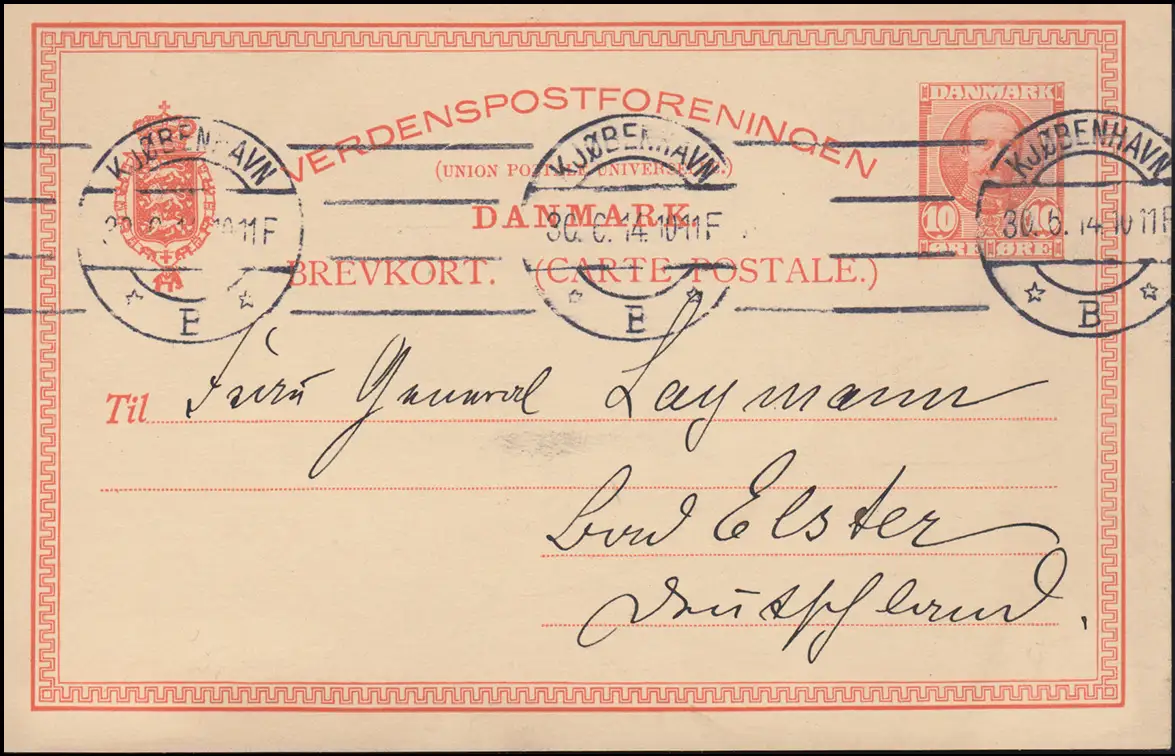 VERDENSPOSTFORENINGEN
(UNION POSTALE UNIVERSELLE.)
DANMARK
BREVKORT. (CARTE POSTALE.)
DANMARK
10 10
ØRE ØRE
KJØBENHAVN
30.6.14.10 11 F
B
KJØBENHAVN
30.6.14.10 11 F
B
KJØBENHAVN
30.6.14.10 11 F
B
Til Frau General Laymann
Bad Elster
Deutschland.